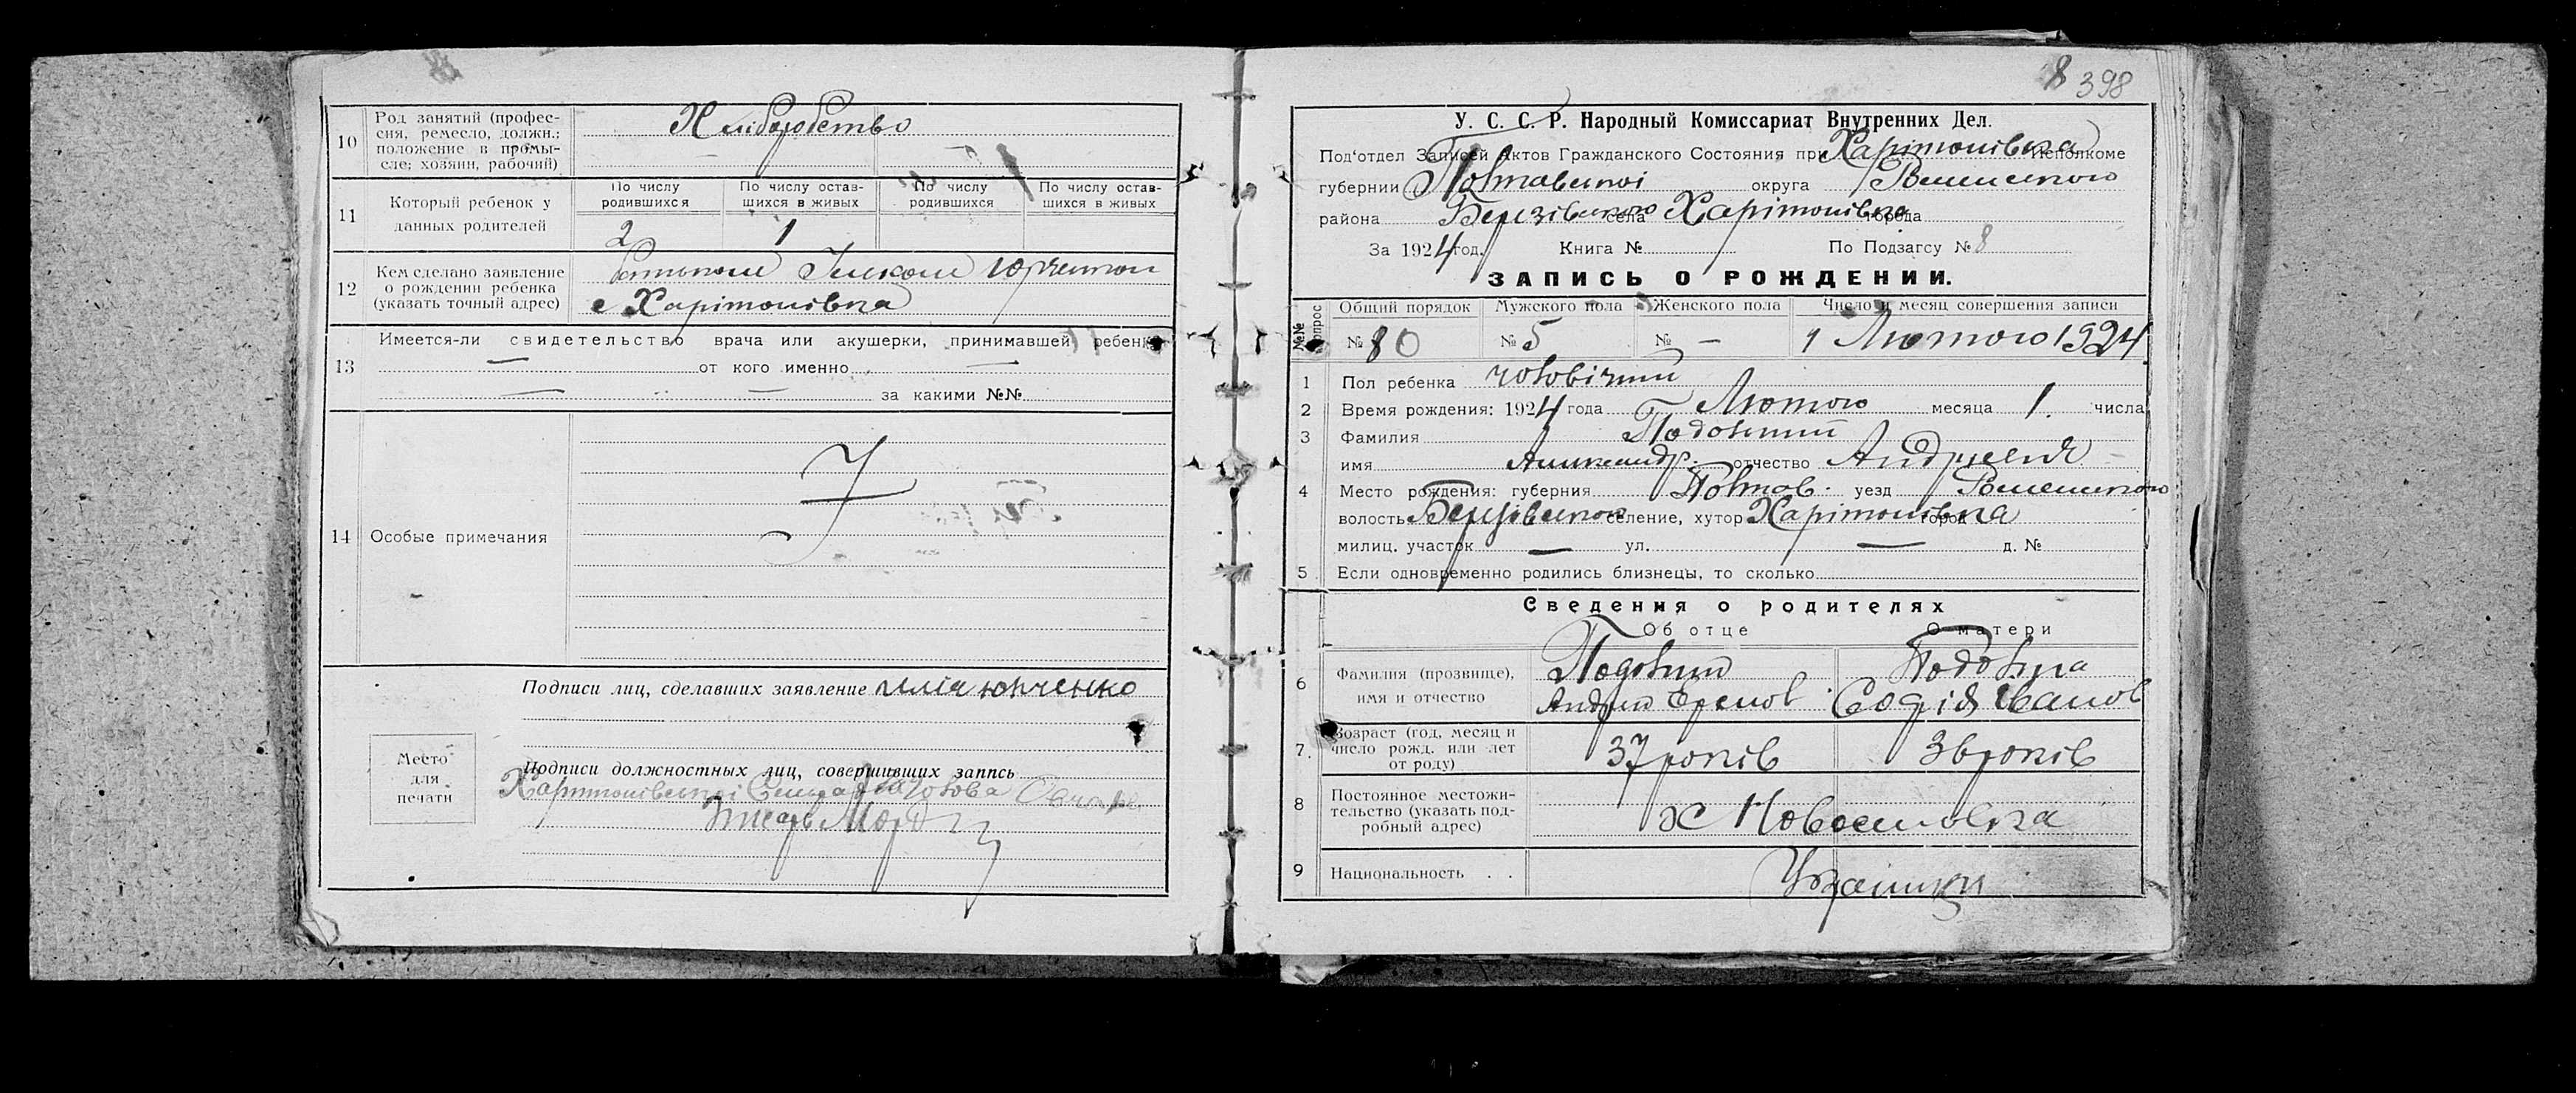 10 Род занятий (профес-
сия, ремесло, должн.;
положение в промы-
сле; хозяин, рабочий)
Хліборобство
11 Который ребенок у
данных родителей
По числу родившихся
По числу остав-шихся в живых
По числу родившихся
По числу остав-шихся в живых
2 1
12 Кем сделано заявление
о рождении ребенка
(указать точный адрес)
Юрченком
с Харітонівка
13 Имеется-ли свидетельство врача или акушерки, принимавшей ребенка
— от кого именно —
— — за какими №№
14 Особые примечания
Подписи лиц, сделавших заявление Ілія Юрченко
Место
для
печати
Подписи должностных лиц, совершивших запись
Харитонівської Голова
Писарь
8 398
У. С. С. Р. Народный Комиссариат Внутренних Дел.
Под'отдел Записей Актов Гражданского Состояния при Харітонівка Исполкоме
губернии Полтавської округа Роменського
района Березівського села Харітонівка города
За 1924 год. Книга № По Подзагсу № 8
ЗАПИСЬ О РОЖДЕНИИ.
№№ вопрос Общий порядок Мужского пола Женского пола Число и месяц совершения записи
№ 80 № 5 № — 1 Лютого 1924
1 Пол ребенка чоловічий
2 Время рождения: 1924 года Лютого месяца 1. числа
3 Фамилия
имя Александр. отчество
4 Место рождения: губерния Полтав. уезд Роменського
волость Березівської селение, хутор Харітонівка город
милиц. участок — ул. — д. №
5 Если одновременно родились близнецы, то сколько
Сведения о родителях
Об отце О матери
6 Фамилия (прозвище),
имя и отчество
Андрий Ефремов
Софія Іванов
7. Возраст (год, месяц и
число рожд. или лет
от роду)
37 років 36 років
8 Постоянное местожи-
тельство (указать под-
робный адрес)
9 Национальность . .